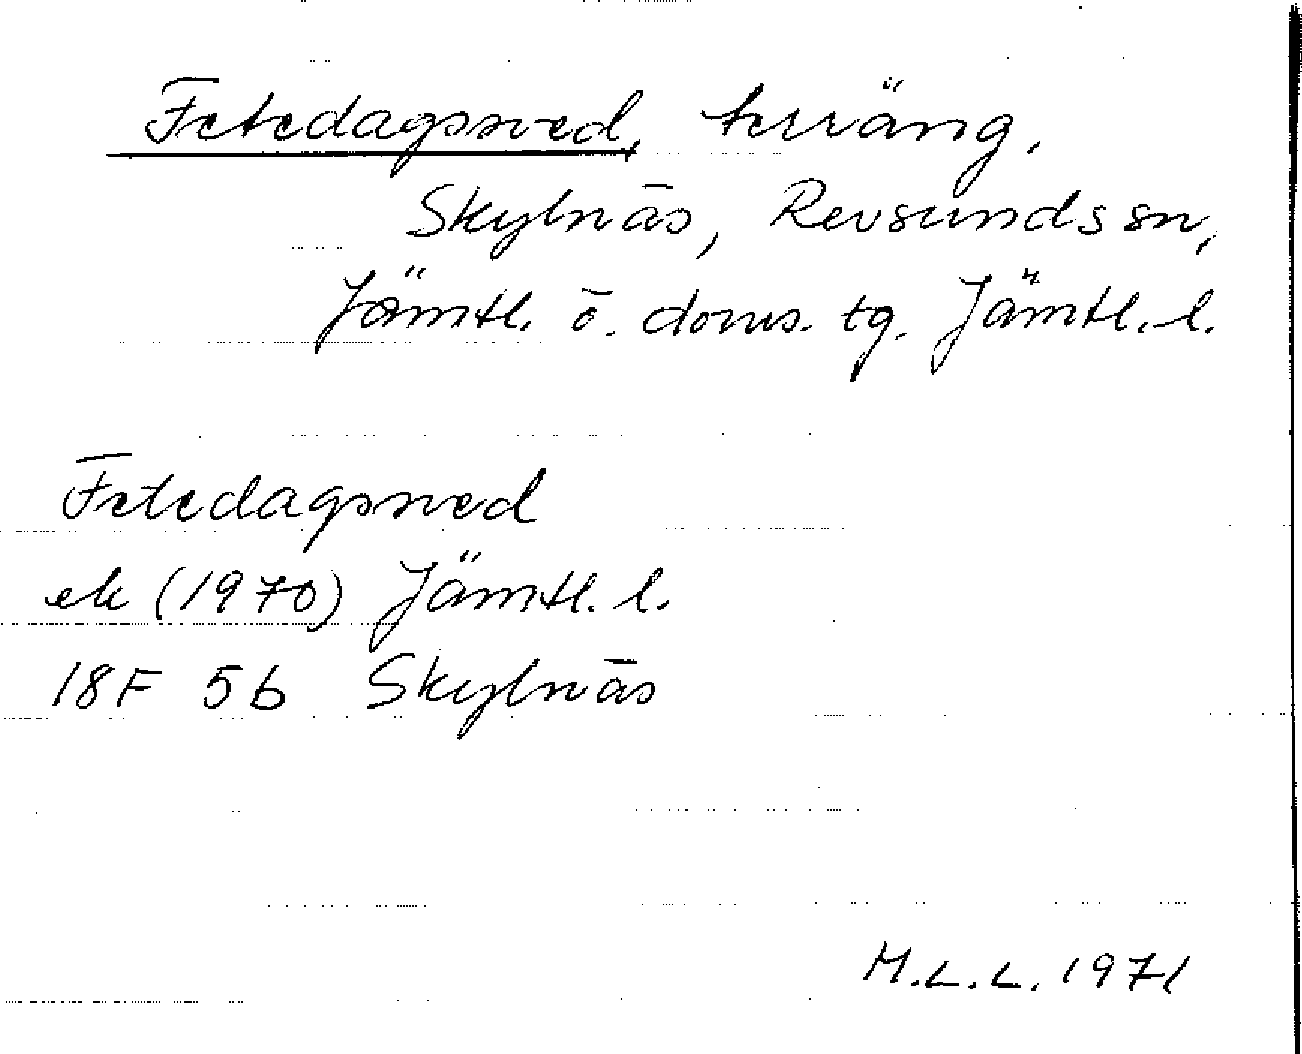 Fetedagsved, terräng.
Skylnäs, Revsunds sn,
Jämtl. ö. doms. tg. Jämtl. l.
Fetedagsved
ek (1970) Jämtl. l.
18F 5b Skylnäs
M.L.L. 1971